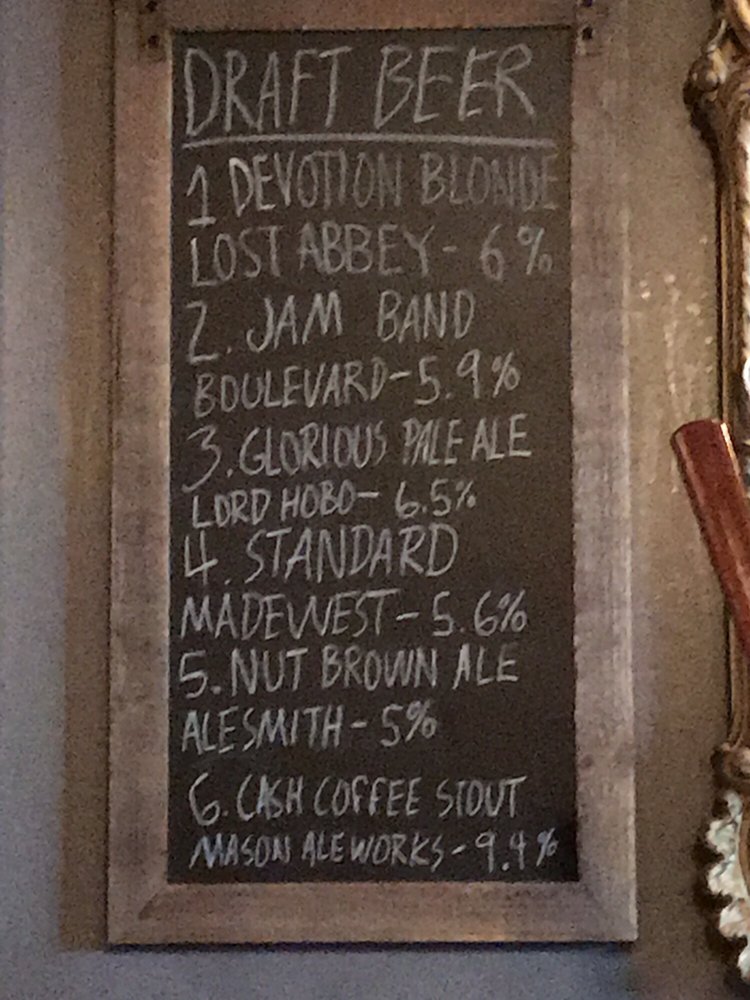 DRAFT BEER
1 DEVOTION BLONDE
LOST ABBEY - 6%
2. JAM BAND
BOULEVARD - 5.9%
3. GLORIOUS PALE ALE
LORD HOBO - 6.5%
4. STANDARD
MADEWEST - 5.6%
5. NUT BROWN ALE
ALESMITH - 5%
6. CASH COFFEE STOUT
MASON ALEWORKS - 9.4%